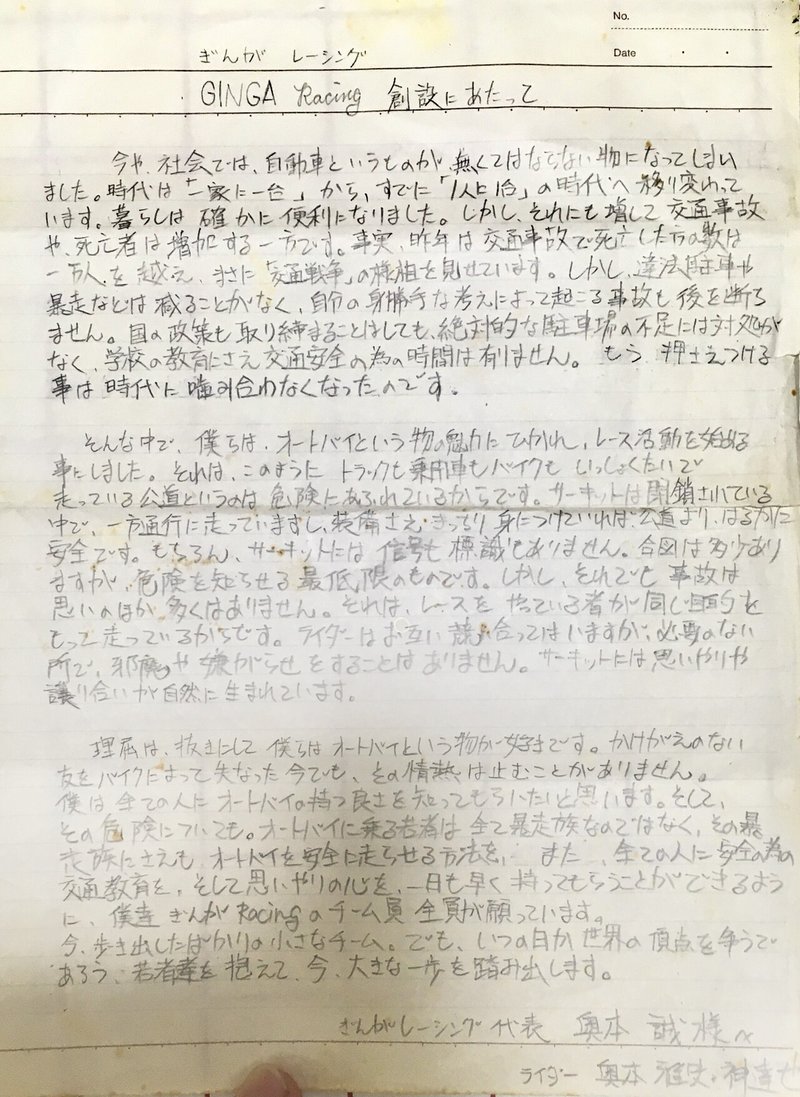 No.
Date ・ ・
ぎんが レーシング
GINGA Racing 創設にあたって
今や、社会では、自動車というものが、無くてはならない物になってしまい
ました。時代は「一家に一台」から、すでに「1人に1台」の時代へ移り変わって
います。暮らしは確かに便利になりました。しかし、それにも増して交通事故
や、死亡者は増加する一方です。事実、昨年は交通事故で死亡した方の数は
一万人を越え、まさに「交通戦争」の様相を見せています。しかし、違法駐車や
暴走などは減ることがなく、自分の身勝手な考えによって起こる事故も後を断ち
ません。国の政策も取り締まることはしても、絶対的な駐車場の不足には対処が
なく、学校の教育にさえ交通安全の為の時間は有りません。もう、押さえつける
事は時代に噛み合わなくなったのです。
そんな中で、僕らは、オートバイという物の魅力にひかれ、レース活動を始める
事にしました。それは、このように トラックも乗用車もバイクも いっしょくたいで
走っている公道というのは危険にあふれているからです。サーキットは閉鎖されている
中で、一方通行に走っていますし、装備さえきっちり身につけていれば公道より、はるかに
安全です。もちろん、サーキットには信号も標識もありません。合図は多少あり
ますが、危険を知らせる最低限のものです。しかし、それでも事故は
思いのほか多くはありません。それは、レースをやっている者が同じ目的を
もって走っているからです。ライダーはお互い競い合ってはいますが、必要のない
所で、邪魔や嫌がらせをすることはありません。サーキットには思いやりや
譲り合いが自然に生まれています。
理屈は、抜きにして僕らはオートバイという物が好きです。かけがえのない
友をバイクによって失なった今でも、その情熱は止むことがありません。
僕は全ての人にオートバイの持つ良さを知ってもらいたいと思います。そして、
その危険についても。オートバイに乗る若者は全て暴走族なのではなく、その暴
走族にさえも、オートバイを安全に走らせる方法を、また、全ての人に安全の為の
交通教育を、そして思いやりの心を、一日も早く持ってもらうことができるよう
に、僕達ぎんがRacingのチーム員全員が願っています。
今、歩き出したばかりの小さなチーム。でも、いつの日か世界の頂点を争うで
あろう、若者達を抱えて、今、大きな一歩を踏み出します。
ぎんがレーシング代表 奥本 誠 様
ライダー 奥本 雅史・神